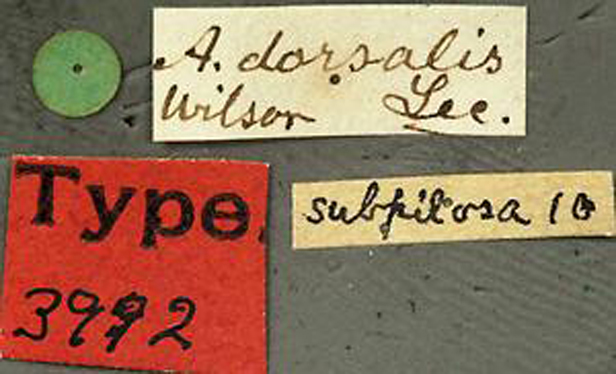 A. dorsalis
Wilson Lec.
Type
subpilosa 10
3992